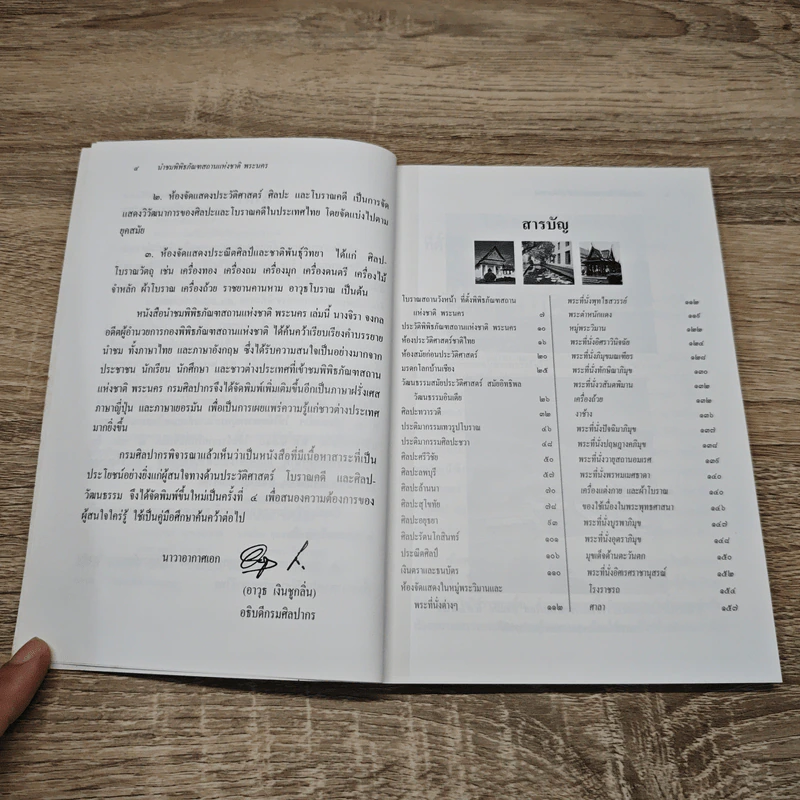 ๔ นำชมพิพิธภัณฑสถานแห่งชาติ พระนคร
๒. ห้องจัดแสดงประวัติศาสตร์ ศิลปะ และโบราณคดี เป็นการจัด
แสดงวิวัฒนาการของศิลปะและโบราณคดีในประเทศไทย โดยจัดแบ่งไปตาม
ยุคสมัย
๓. ห้องจัดแสดงประณีตศิลป์และชาติพันธุ์วิทยา ได้แก่ ศิลป-
โบราณวัตถุ เช่น เครื่องทอง เครื่องถม เครื่องมุก เครื่องดนตรี เครื่องไม้
จำหลัก ผ้าโบราณ เครื่องถ้วย ราชยานคานหาม อาวุธโบราณ เป็นต้น
หนังสือนำชมพิพิธภัณฑสถานแห่งชาติ พระนคร เล่มนี้ นางจิรา จงกล
อดีตผู้อำนวยการกองพิพิธภัณฑสถานแห่งชาติ ได้ค้นคว้าเรียบเรียงคำบรรยาย
นำชม ทั้งภาษาไทย และภาษาอังกฤษ ซึ่งได้รับความสนใจเป็นอย่างมากจาก
ประชาชน นักเรียน นักศึกษา และชาวต่างประเทศที่เข้าชมพิพิธภัณฑสถาน
แห่งชาติ พระนคร กรมศิลปากรจึงได้จัดพิมพ์เพิ่มเติมขึ้นอีกเป็นภาษาฝรั่งเศส
ภาษาญี่ปุ่น และภาษาเยอรมัน เพื่อเป็นการเผยแพร่ความรู้แก่ชาวต่างประเทศ
มากยิ่งขึ้น
กรมศิลปากรพิจารณาแล้วเห็นว่าเป็นหนังสือที่มีเนื้อหาสาระที่เป็น
ประโยชน์อย่างยิ่งแก่ผู้สนใจทางด้านประวัติศาสตร์ โบราณคดี และศิลป-
วัฒนธรรม จึงได้จัดพิมพ์ขึ้นใหม่เป็นครั้งที่ ๔ เพื่อสนองความต้องการของ
ผู้สนใจใคร่รู้ ใช้เป็นคู่มือศึกษาค้นคว้าต่อไป
นาวาอากาศเอก
(อาวุธ เงินชูกลิ่น)
อธิบดีกรมศิลปากร
สารบัญ
โบราณสถานวังหน้า ที่ตั้งพิพิธภัณฑสถาน
แห่งชาติ พระนคร ๗
ประวัติพิพิธภัณฑสถานแห่งชาติ พระนคร ๑๐
ห้องประวัติศาสตร์ชาติไทย ๑๖
ห้องสมัยก่อนประวัติศาสตร์ ๒๐
มรดกโลกบ้านเชียง ๒๕
วัฒนธรรมสมัยประวัติศาสตร์ สมัยอิทธิพล
วัฒนธรรมอินเดีย ๒๖
ศิลปะทวารวดี ๓๒
ประติมากรรมเทวรูปโบราณ ๔๖
ประติมากรรมศิลปะชวา ๔๘
ศิลปะศรีวิชัย ๕๐
ศิลปะลพบุรี ๕๗
ศิลปะล้านนา ๗๐
ศิลปะสุโขทัย ๗๘
ศิลปะอยุธยา ๙๓
ศิลปะรัตนโกสินทร์ ๑๐๑
ประณีตศิลป์ ๑๐๖
เงินตราและธนบัตร ๑๑๐
ห้องจัดแสดงในหมู่พระวิมานและ
พระที่นั่งต่างๆ ๑๑๒
พระที่นั่งพุทไธสวรรย์ ๑๑๒
พระตำหนักแดง ๑๑๙
หมู่พระวิมาน ๑๒๒
พระที่นั่งอิศราวินิจฉัย ๑๒๔
พระที่นั่งภิมุขมณเฑียร ๑๒๘
พระที่นั่งทักษิณาภิมุข ๑๓๐
พระที่นั่งวสันตพิมาน ๑๓๒
เครื่องถ้วย ๑๓๒
งาช้าง ๑๓๖
พระที่นั่งปัจฉิมาภิมุข ๑๓๗
พระที่นั่งปฤษฎางคภิมุข ๑๓๘
พระที่นั่งวายุสถานอมเรศ ๑๓๙
พระที่นั่งพรหมเมศธาดา ๑๔๐
เครื่องแต่งกาย และผ้าโบราณ ๑๔๐
ของใช้เนื่องในพระพุทธศาสนา ๑๔๖
พระที่นั่งบูรพาภิมุข ๑๔๗
พระที่นั่งอุตราภิมุข ๑๔๘
มุขเด็จด้านตะวันตก ๑๕๐
พระที่นั่งอิศเรศราชานุสรณ์ ๑๕๒
โรงราชรถ ๑๕๔
ศาลา ๑๕๗